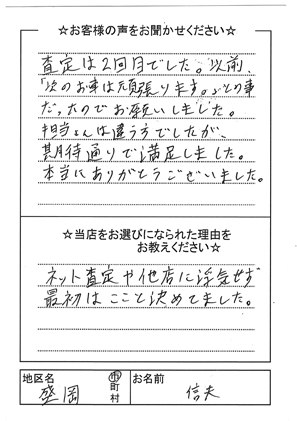 ☆お客様の声をお聞かせください☆
査定は2回目でした。以前、
「次のお車は頑張ります。」との事
だったのでお願いしました。
担当さんは違う方でしたが、
期待通りで満足しました。
本当にありがとうございました。
☆当店をお選びになられた理由を
お教えください☆
ネット査定や他店に浮気せず
最初はここと決めてました。
地区名
盛岡
市
町
村
お名前
信夫